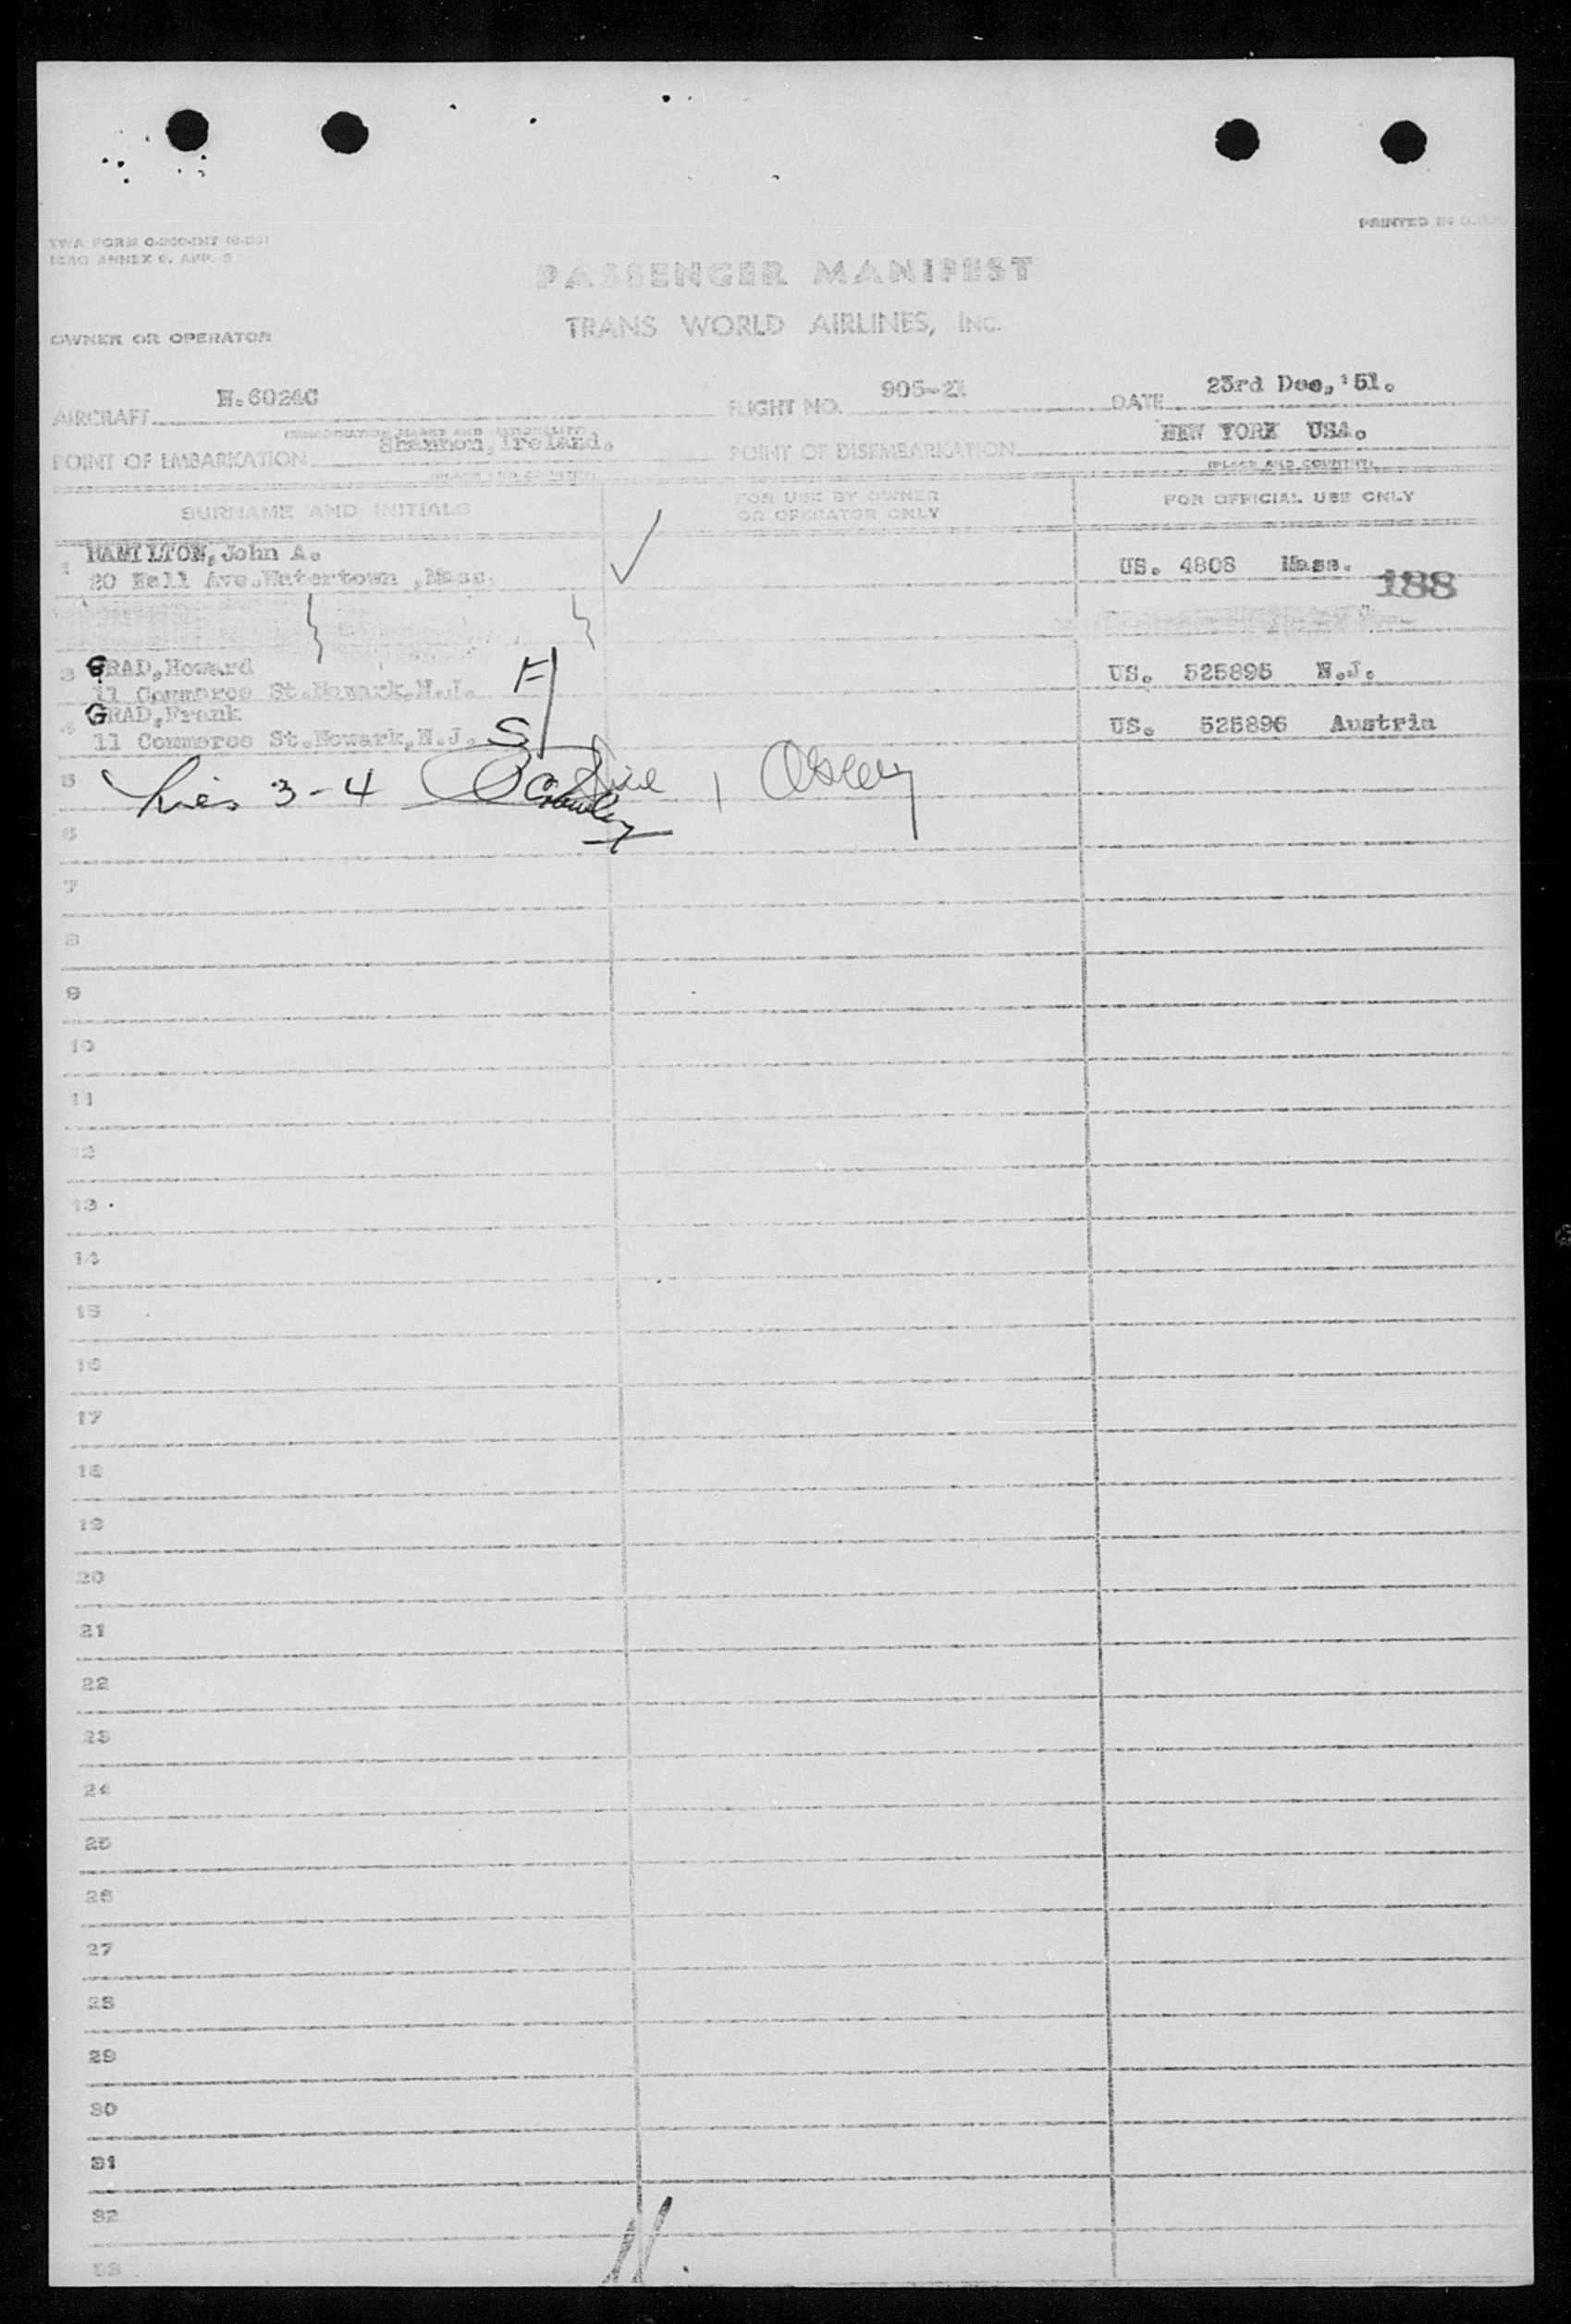 PRINTED IN U.S.A.
TWA FORM
ICAO ANNEX 9, APP. 
PASSENGER MANIFEST
TRANS WORLD AIRLINES, INC.
OWNER OR OPERATOR
AIRCRAFT N.6024C FLIGHT NO. 905-21 DATE 23rd Dec,'51.
POINT OF EMBARKATION Shannon, Ireland. POINT OF DISEMBARKATION NEW YORK USA.
(PLACE AND COUNTRY) (PLACE AND COUNTRY)
SURNAME AND INITIALS FOR USE BY OWNER OR OPERATOR ONLY FOR OFFICIAL USE ONLY
1 HAMILTON, John A. US. 4808 Mass. 188
20 Ave. Watertown, Mass.
3 GRAD, Howard H US. 525895 N.J.
11 Commerce St. Newark, N.J.
4 GRAD, Frank S US. 525896 Austria
11 Commerce St. Newark, N.J.
5 3-4
6
7
8
9
10
11
12
13
14
15
16
17
18
19
20
21
22
23
24
25
26
27
28
29
30
31
32
33